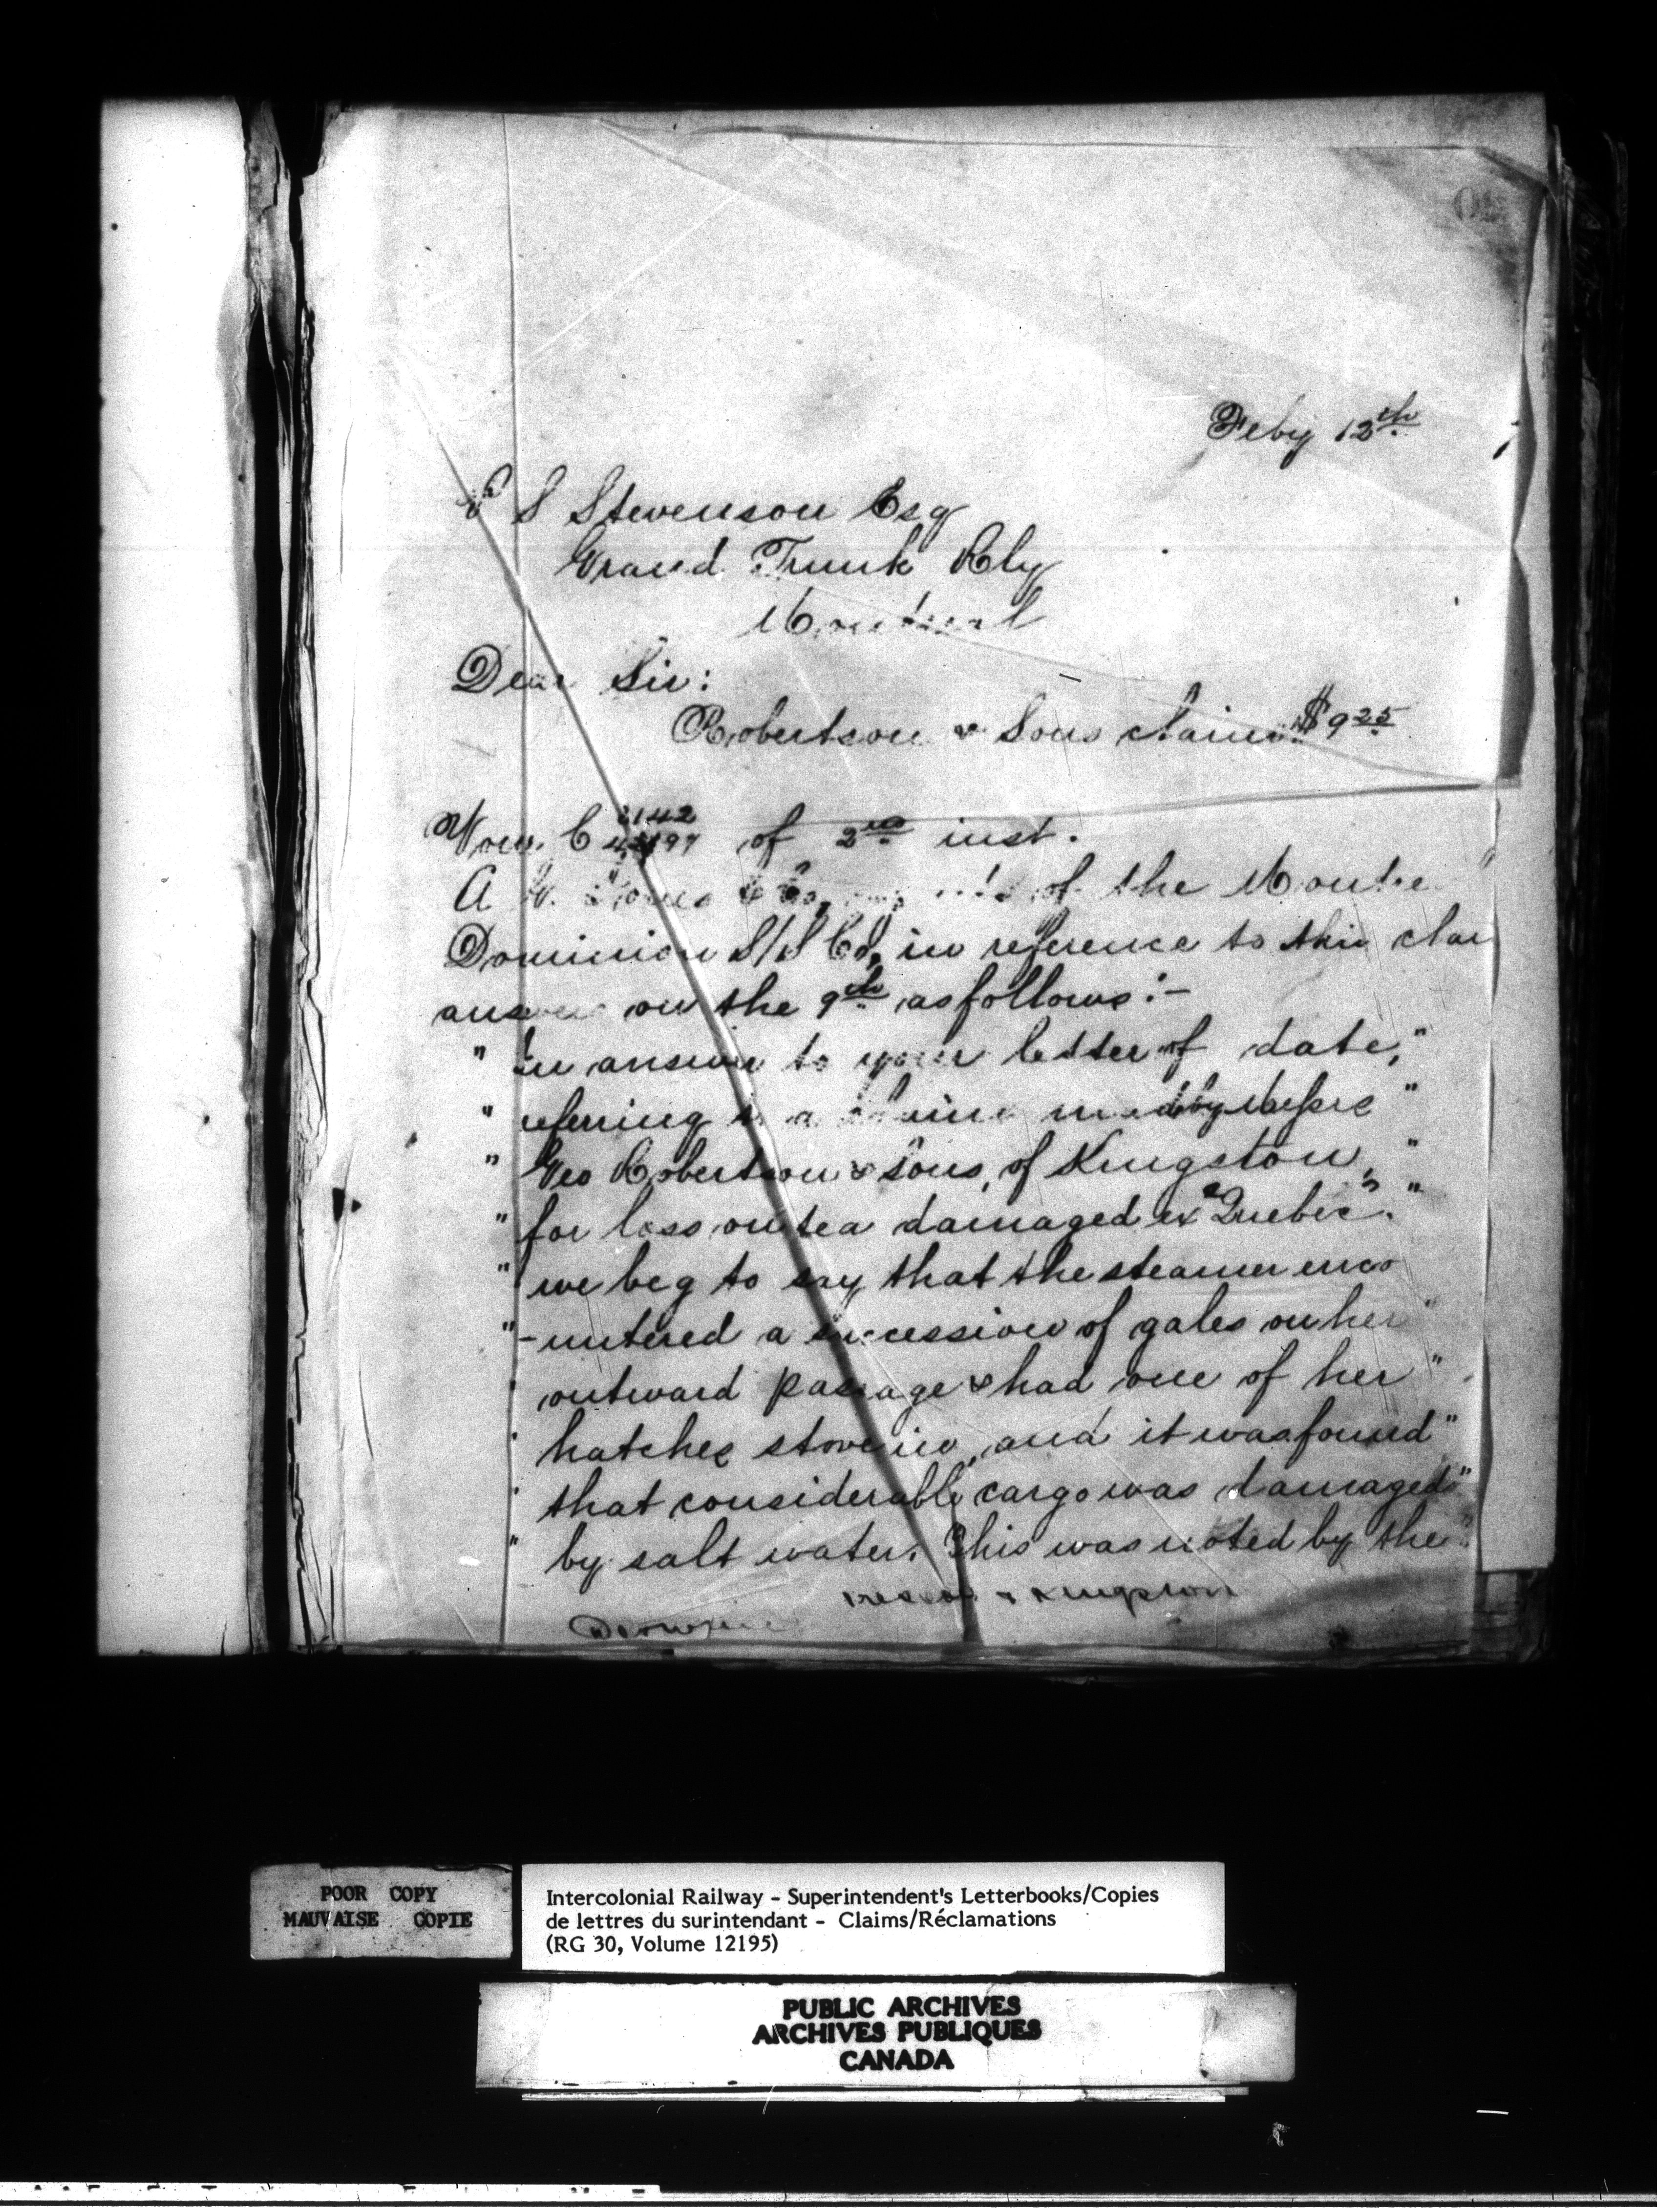 Feby 12th
P S Stevenson Esq
Grand Trunk Rly
Montreal
Dear Sir:
Robertson & Sons claim $9 25
Your C 2142 of 2nd inst.
A G. Jones & Co, of the Montre
Dominion S/S Co, in reference to this clai
answer on the 9th as follows:-
" In answer to your letter of date, "
" referring to a claim made by Messrs "
" Geo Robertson & Sons, of Kingston, "
" for loss on tea damaged ex "Quebec". "
" we beg to say that the steamer enco
"-untered a succession of gales on her "
outward passage & had one of her "
" hatches stove in, and it was found "
" that considerable cargo was damaged "
" by salt water. This was noted by the "
& Kingston
POOR COPY
MAUVAISE COPIE
Intercolonial Railway - Superintendent's Letterbooks/Copies
de lettres du surintendant - Claims/Réclamations
(RG 30, Volume 12195)
PUBLIC ARCHIVES
ARCHIVES PUBLIQUES
CANADA